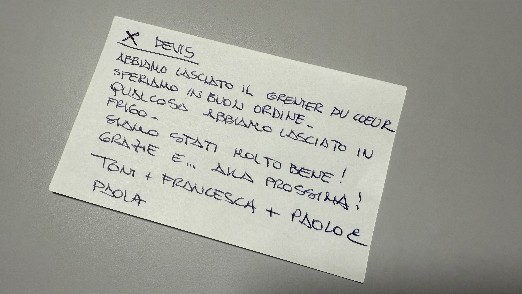 X DEVIS
ABBIAMO LASCIATO IL GRENIER DU COEUR
SPERIAMO IN BUON ORDINE-
QUALCOSA ABBIAMO LASCIATO IN
FRIGO-
SIAMO STATI MOLTO BENE!
GRAZIE E... ALLA PROSSIMA!
TONI + FRANCESCA + PAOLO e
PAOLA